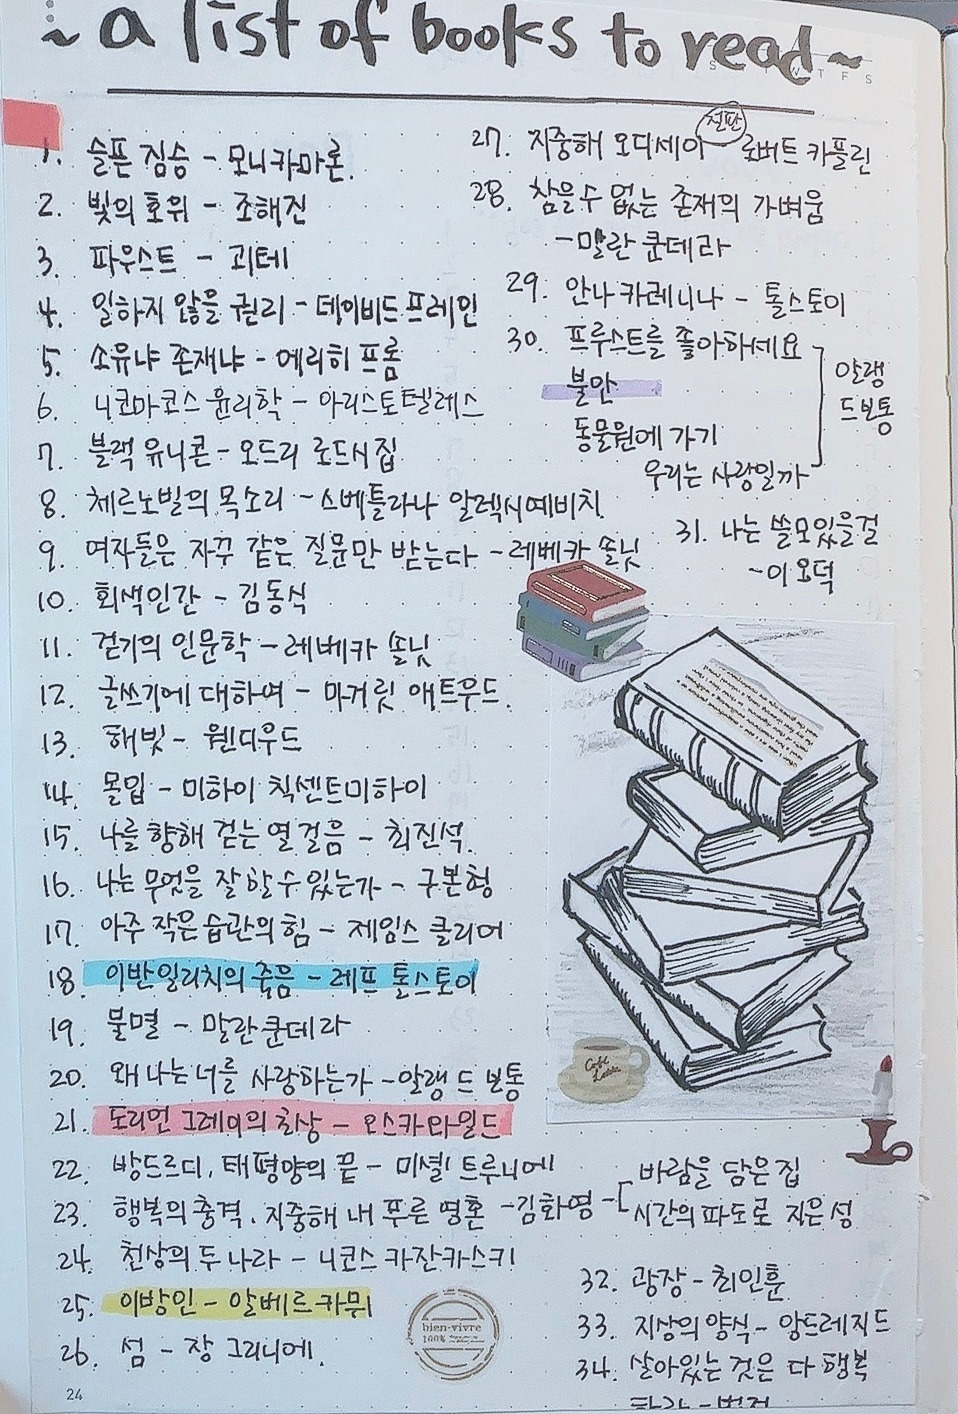 ~ a list of books to read ~
S M T W T F S
1. 슬픈 짐승 - 모니카마론.
2. 빛의 호위 - 조해진
3. 파우스트 - 괴테
4. 일하지 않을 권리 - 데이비드 프레인
5. 소유냐 존재냐 - 에리히 프롬
6. 니코마코스 윤리학 - 아리스토텔레스
7. 블랙 유니콘 - 오드리 로드시집
8. 체르노빌의 목소리 - 스베틀라나 알렉시예비치
9. 여자들은 자꾸 같은 질문만 받는다 - 레베카 솔닛
10. 회색인간 - 김동식
11. 걷기의 인문학 - 레베카 솔닛
12. 글쓰기에 대하여 - 마거릿 애트우드
13. 해빛 - 웬디우드
14. 몰입 - 미하이 칙센트미하이
15. 나를 향해 걷는 열 걸음 - 최진석
16. 나는 무엇을 잘 할 수 있는가 - 구본형
17. 아주 작은 습관의 힘 - 제임스 클리어
18. 이반일리치의 죽음 - 레프 톨스토이
19. 불멸 - 말란쿤데라
20. 왜 나는 너를 사랑하는가 - 알랭 드 보통
21. 도리언 그레이의 초상 - 오스카와일드
22. 방드르디, 태평양의 끝 - 미셸 트루니에
23. 행복의 충격. 지중해 내 푸른 영혼 - 김화영 -
바람을 담은 집
시간의 파도로 지은 성
24. 천상의 두 나라 - 니코스 카잔카스키
25. 이방인 - 알베르카뮈
26. 섬 - 장 그리니에.
27. 지중해 오디세이 - 로버트 카플린
절판
28. 참을수 없는 존재의 가벼움
- 말란 쿤데라
29. 안나카레니나 - 톨스토이
30. 프루스트를 좋아하세요
불안
동물원에 가기
우리는 사랑일까
알랭
드보통
31. 나는 쓸모있을걸
- 이오덕
Café
bien-vivre
100%
32. 광장 - 최인훈
33. 지상의 양식 - 앙드레지드
34. 살아있는 것은 다 행복
하라 - 법정
24